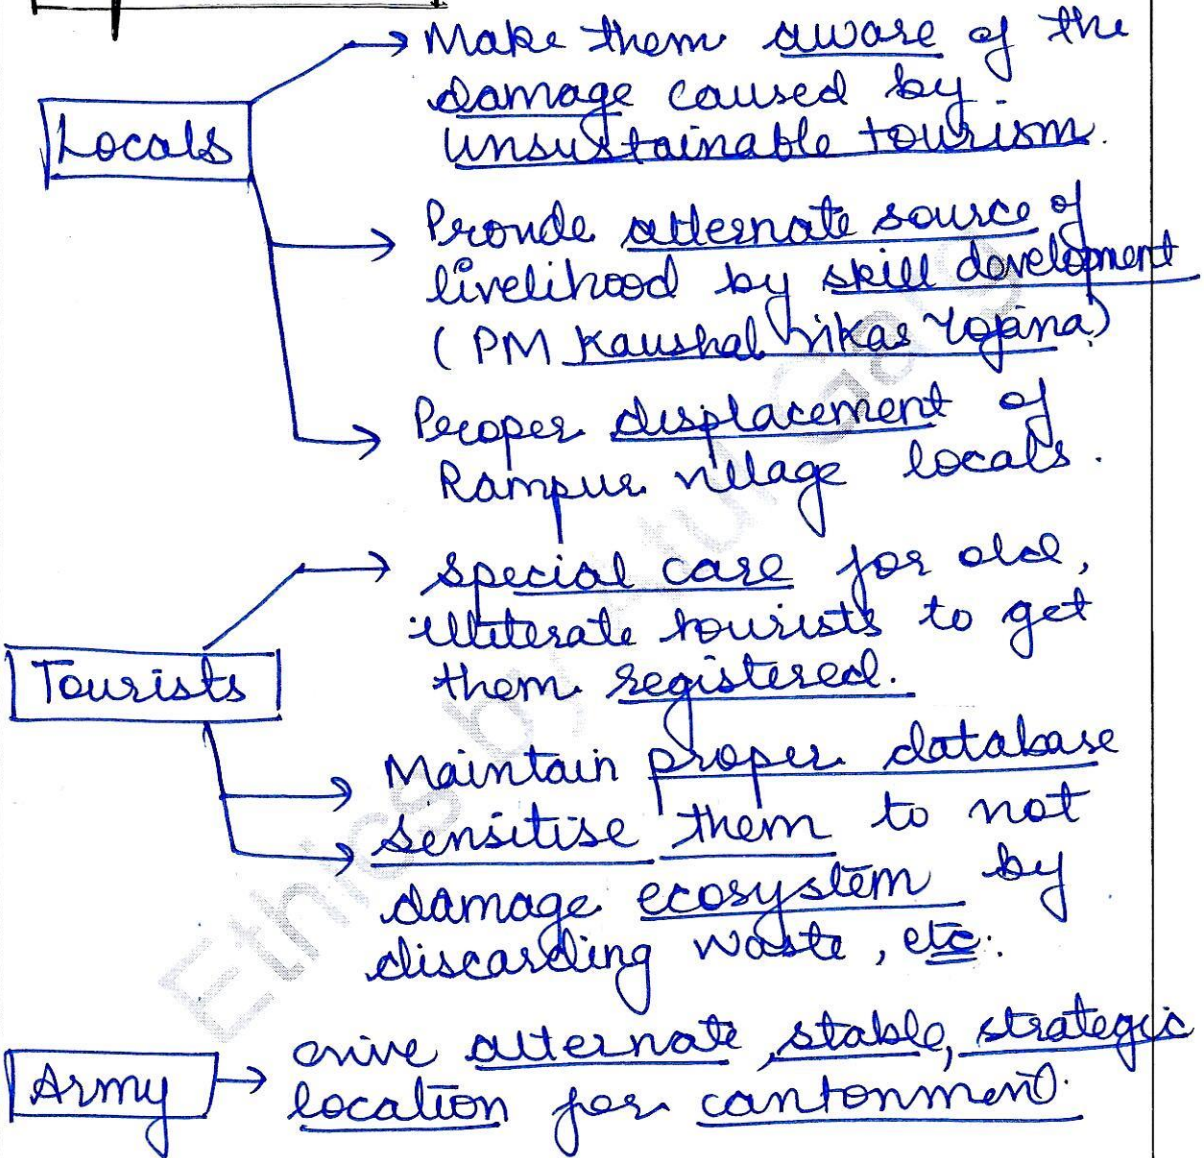 Locals
→ Make them aware of the
damage caused by
unsustainable tourism.
→ Provide alternate source of
livelihood by skill development
(PM Kaushal Vikas Yojana)
→ Proper displacement of
Rampur village locals.
Tourists
→ special care for old,
illiterate tourists to get
them registered.
→ Maintain proper database
→ sensitise them to not
damage ecosystem by
discarding waste, etc.
Army → Give alternate, stable, strategic
location for cantonment.
Ethics by